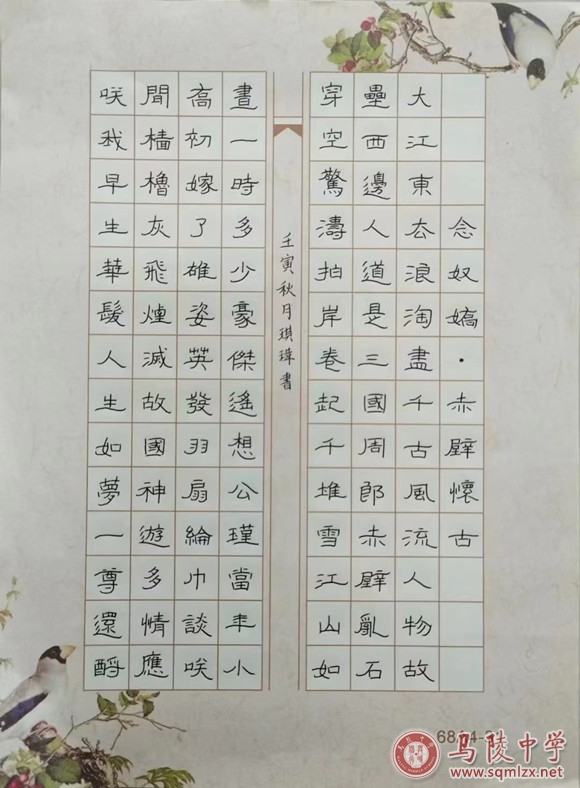 念奴嬌·赤壁懷古
大江東去浪淘盡千古風流人物故
壘西邊人道是三國周郎赤壁亂石
穿空驚濤拍岸卷起千堆雪江山如
壬寅秋月琪瑋書
畫一時多少豪傑遙想公瑾當年小
喬初嫁了雄姿英發羽扇綸巾談咲
間檣櫓灰飛煙滅故國神遊多情應
咲我早生華髮人生如夢一尊還酹
马陵中学
www.sqmlzx.net